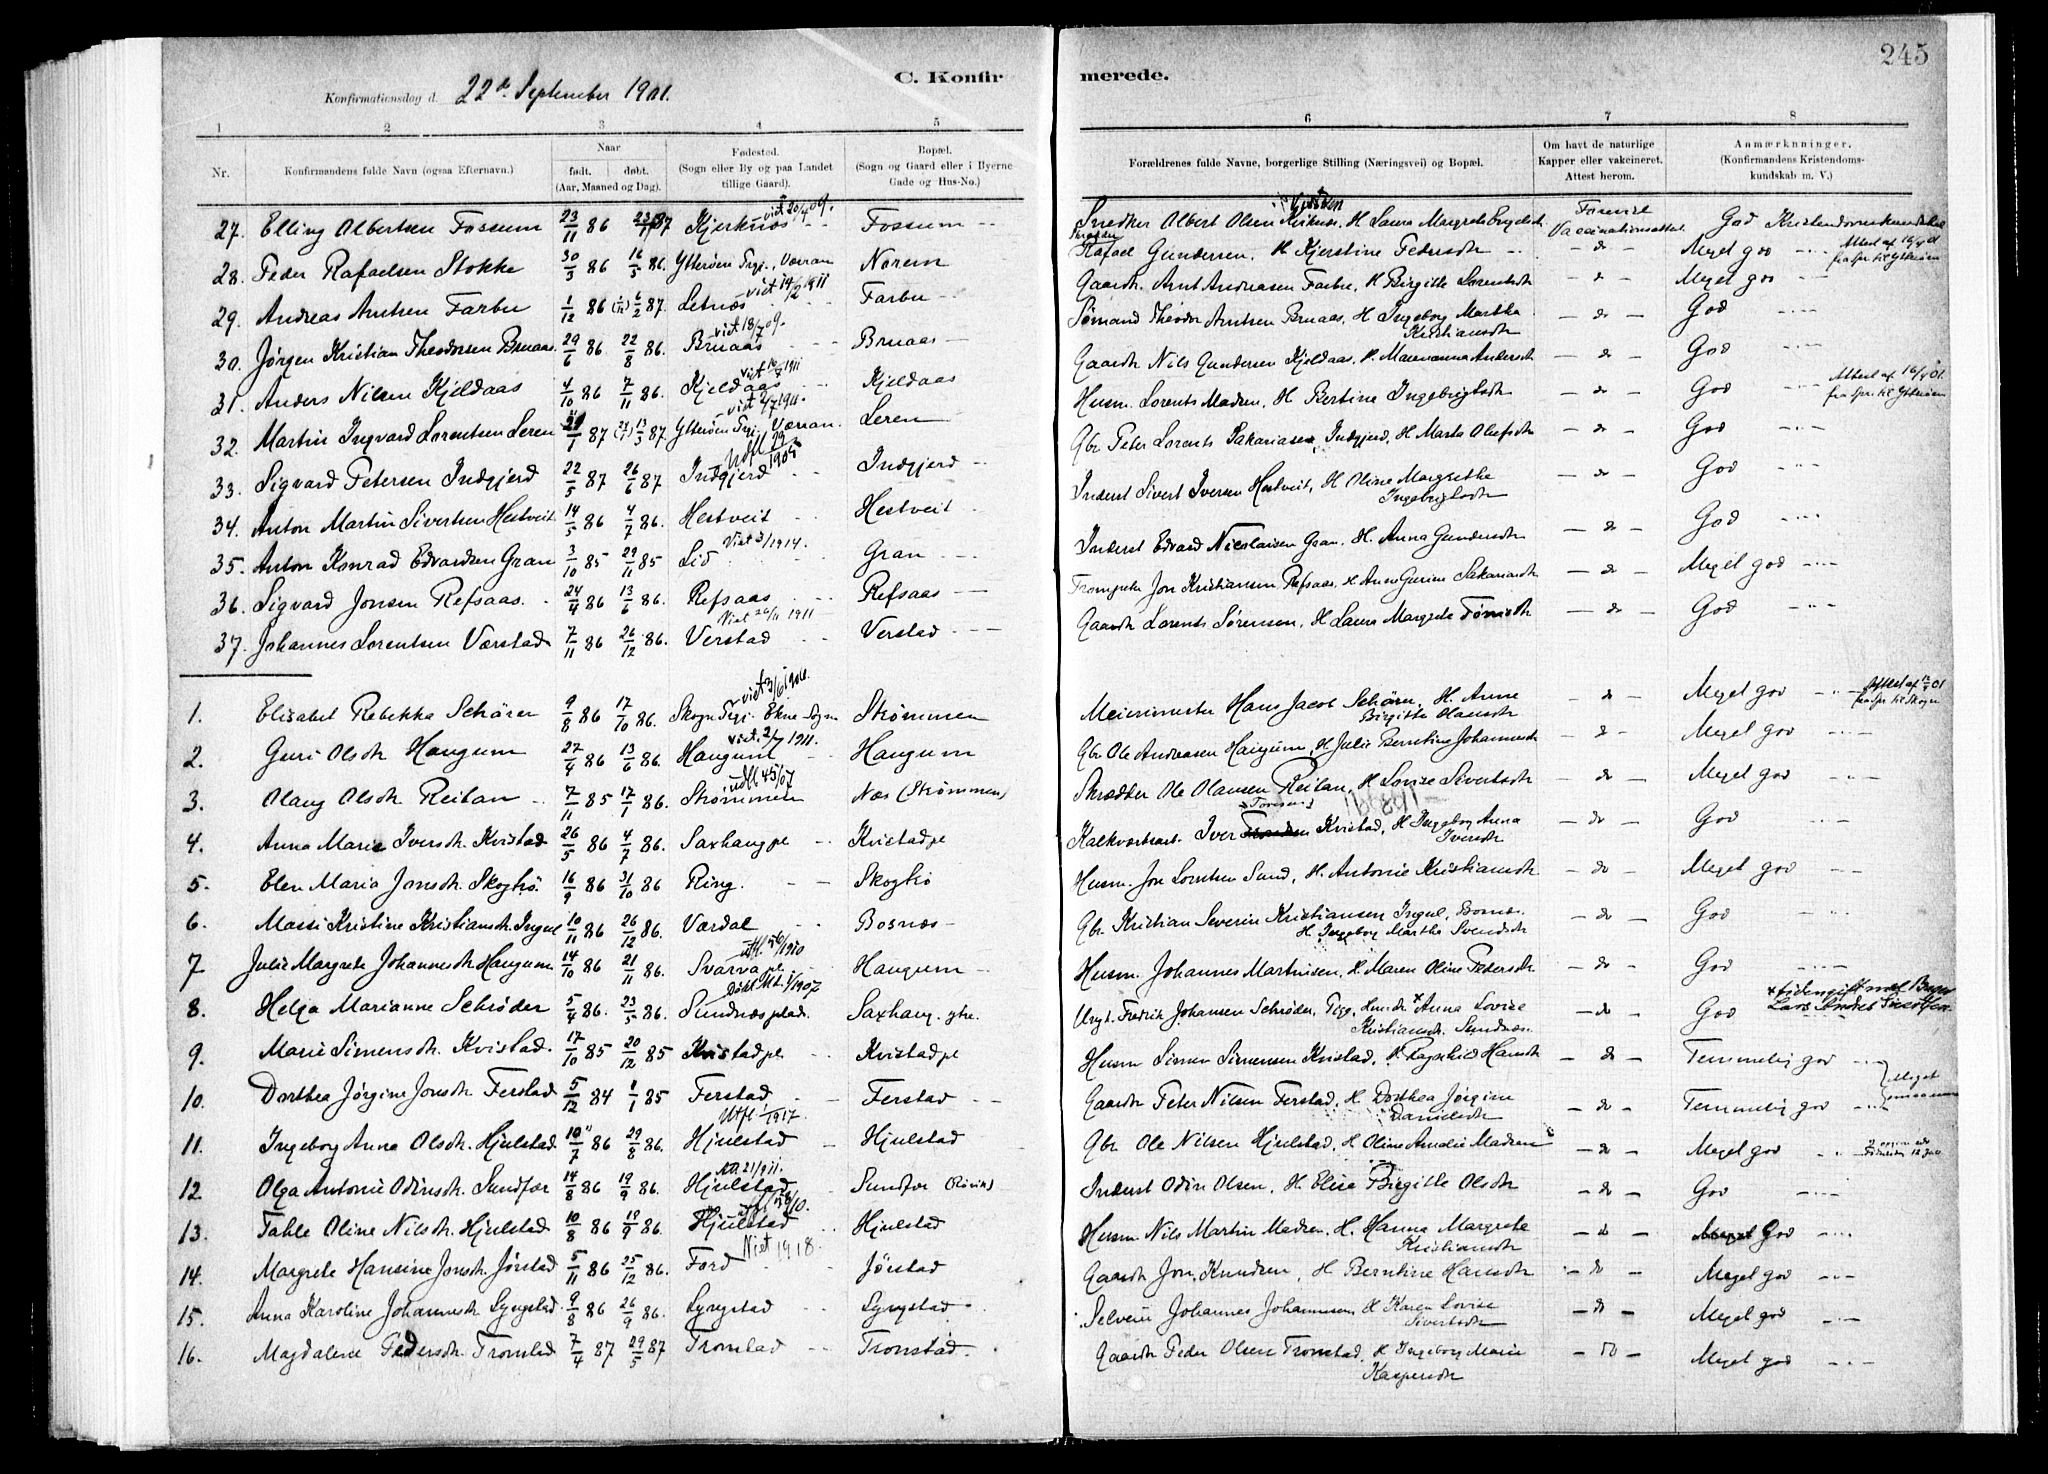 245
C. Konfirmerede.
Konfirmationsdag d. 22de September 1901.
1 2 3 4 5 6 7 8
Nr.
Konfirmandens fulde Navn (ogsaa Efternavn).
Naar født. døbt. (Aar, Maaned og Dag).
Fødested. (Sogn eller By og paa Landet tillige Gaard).
Bopæl. (Sogn og Gaard eller i Byerne Gade og Hus-No.)
Forældrenes fulde Navne, borgerlige Stilling (Næringsvei) og Bopæl.
Om havt de naturlige Kapper eller vakcineret. Attest herom.
Anmærkninger. (Konfirmandens Kristendomskundskab m. V.)
27. Elling Albertsen Fossum 23/11 86 Kjerknæs viet 20/4 09. Fossum Snedker Albert Olsen H. Laura Margrete God
28. Peder Rafaelsen Stokke 30/3 86 16/5 86. Ytterøen Prgj., Værran Norem Rafael Gundersen, H. Kjerstine Pedersdtr - do - Meget god Attest af 16/9 01 fra spr. til Ytterøen
29. Andreas Arntsen Farbu 1/12 86 6/2 87. Letnæs viet 14/2 1911 Farbu Gaardb. Arnt Andreasen Farbu, H. Birgitte Lorentsdtr - do - Meget god
30. Jørgen Kristian Theodorsen Bruaas. 29/6 86 22/8 86. Bruaas viet 18/7 09. Bruaas Sømand Theodor Arntsen Bruaas, H. Ingeborg Martha Kristiansdtr - do - God
31. Anders Nilsen Kjeldaas 4/10 86 7/11 86. Kjeldaas Kjeldaas Gaardb. Nils Gundersen Kjeldaas, H. Andersdtr - do - God
32. Martin Ingvard Lorentsen Leren 87 13/3 87 Ytterøen Prgj., Værran. Leren Husm. Lorents Madsen, H. Bertine Ingebrigtsdtr - do - God Attest af 16/9 01. fra spr. til Ytterøen
33. Sigvard Petersen Indgjerd 22/5 87 26/6 87 Indgjerd 1905 Indgjerd Gbr. Peter Lorents Sakariasen, Indgjerd, H. Marta Olufsdtr - do - God
34. Anton Martin Sivertsen Hestveit 14/5 86 4/7 86. Hestveit Hestveit Inderst Sivert Iversen Hestveit, H. Oline Margrethe Ingebrigtsdtr - do - God
35. Anton Konrad Edvardsen Gran 3/10 85 29/11 85 Lid Gran Inderst Edvard Nicolaisen Gran, H. Anna Gundersdtr - do - God
36. Sigvard Jonsen Refsaas. 24/4 86 13/6 86. Refsaas Refsaas Jon Kristiansen Refsaas, H. Anne Gurine Sakariasdtr - do - Meget god
37. Johannes Lorentsen Værstad 7/11 86 26/12 86. Verstad Viet 26/11 1911 Verstad Gaardb. Lorents Sørensen, H. Laura Margrete Tønnesdtr - do - God
1. Elisabet Rebekka Schärer 9/8 86 17/10 86. Skogn Prgj. Ekne Sogn viet 3/6 1906. Strømmen Meierimester Hans Jacob Schärer, H. Anne Birgitte Hansdtr - do - Meget god fra spr. til Skogn
2. Guri Olsdtr. Haugum 27/4 86 13/6 86. Haugum viet 2/7 1911. Haugum Gbr. Ole Andreasen Haugum, H. Julie Berntine Johannesdtr - do - Meget god
3. Olaug Olsdtr. Reitan 7/11 85 17/1 86. Strømmen udfl. 45/07 Næs (Strømmen) Skrædder Ole Olausen Reitan, H. Lovise Sivertsdtr - do - Meget god
4. Anna Marie Iversdtr. Kvistad 26/5 86 4/7 86. Saxhaugpl Kvistadpl Iver Kvistad, H. Ingeborg Anna Iversdtr - do - God
5. Elen Maria Jonsdtr. Skogtrø. 16/9 86 31/10 86 Ring. Skogtrø Husm. Jon Lorntsen Sund, H. Antonie Kristiansdtr - do - Meget god
6. Massi Kristine Kristiansdtr. Ingul 10/11 86 26/12 86. Værdal Bosnæs Gbr. Kristian Severin Kristiansen Ingul, H. Ingeborg Martha Svendsdtr - do - God
7 Julie Margrete Johannesdtr Haugum 14/10 86 21/11 86. Svarva pl. Haugum Husm. Johannes Martinsen, H. Maren Oline Pedersdtr - do - God
8. Helga Marianne Schrøder 5/4 86. 23/5 86. Sundnæs plad. Saxhaug. ytre. Ungk. Fredrik Johansen Schrøder, Pige, × Anna Lovise Kristiansdtr. Sundnæs. - do - God
9. Marie Simensdtr. Kvistad. 17/10 85 20/12 85 Kvistadpl Kvistadpl Husm Simon Simensen Kvistad, H. Ragnhild Hansdtr - do - Temmelig god
10. Dorthea Jørgine Jonsdtr Ferstad 5/12 84 1/1 85 Ferstad Ferstad Gaardb. Peter Nilsen Ferstad, H. Dorthea Jørgine Danielsdtr - do - Temmelig god
11. Ingeborg Anna Olsdtr. Hjulstad 10/7 86 29/8 86. Hjulstad Utfl. 1917. Hjulstad Gbr. Ole Nilsen Hjulstad, H. Oline Amalie Madsen - do - Meget god
12 Olga Antonie Odinsdtr. Sundfær 14/8 86 19/9 86. Hjulstad Sundfær Inderst Odin Olsen, H. Elise Birgitte Olsdtr - do - God
13. Tahle Oline Nilsdtr. Hjulstad 10/8 86 19/9 86. Hjulstad Hjulstad Husm Nils Martin Madsen, H. Hanna Margrete Kristiansdtr - do - God
14. Margrete Hansine Jonsdtr. Jørstad 5/11 86 25/12 86. Ford Viet 1918. Jørstad Gaardb. Jon Knudsen, H. Berntine Hansdtr - do - Meget god
15. Anna Karoline Johannesdtr Lyngstad 9/8 86 26/9 86. Lyngstad Lyngstad. Selveier Johannes Johannesen H. Karen Lovise Sivertsdtr - do - Meget god
16. Magdalene Pedersdtr. Tronstad 7/4 87 29/5 87 Tronstad Tronstad. Gaardb. Peder Olsen Tronstad, H. Ingeborg Marie Kaspersdtr - do - Meget god